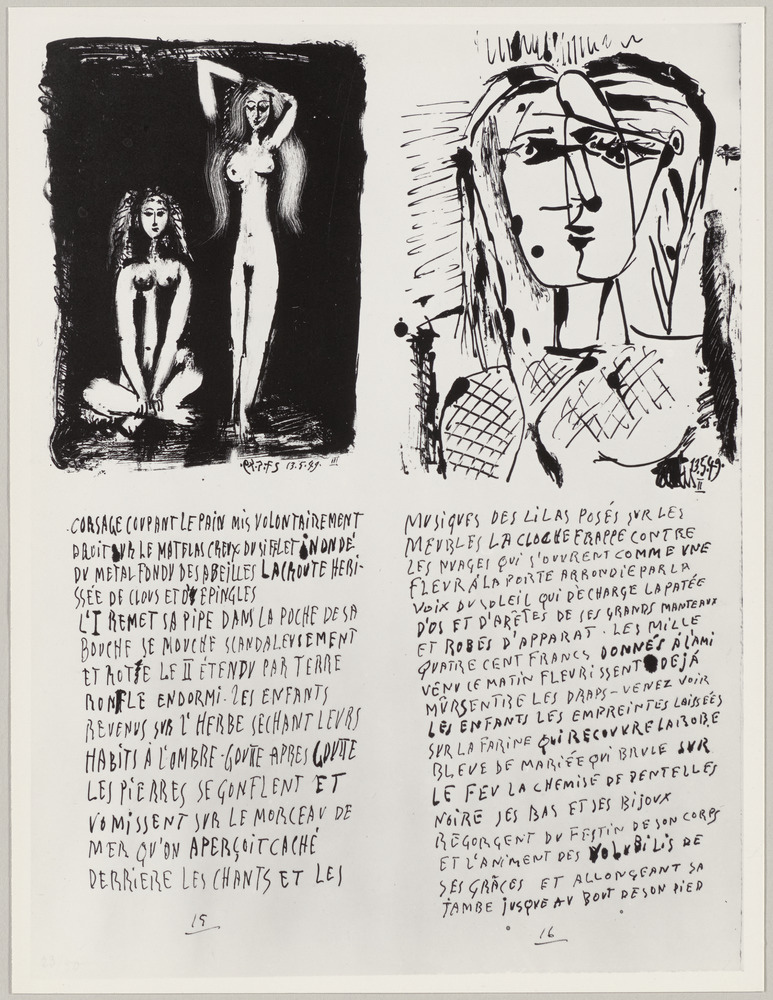 13.5.49. III
CORSAGE COUPANT LE PAIN MIS VOLONTAIREMENT
DROIT SUR LE MATELAS CREUX DU SIFFLET INONDÉ
DU METAL FONDU DES ABEILLES LA CROUTE HERI-
SSÉE DE CLOUS ET D'EPINGLES
L'I REMET SA PIPE DANS LA POCHE DE SA
BOUCHE SE MOUCHE SCANDALEUSEMENT
ET ROTE LE II ÉTENDU PAR TERRE
RONFLE ENDORMI. LES ENFANTS
REVENUS SUR L'HERBE SECHANT LEURS
HABITS À L'OMBRE-GOUTTE APRES GOUTTE
LES PIERRES SE GONFLENT ET
VOMISSENT SUR LE MORCEAU DE
MER QU'ON APERÇOIT CACHÉ
DERRIERE LES CHANTS ET LES
19
13.5.49.
II
MUSIQUES DES LILAS POSÉS SUR LES
MEUBLES LA CLOCHE FRAPPE CONTRE
LES NUAGES QUI S'OUVRENT COMME UNE
FLEUR À LA PORTE ARRONDIE PAR LA
VOIX DU SOLEIL QUI DECHARGE LA PATÉE
D'OS ET D'ARÊTES DE SES GRANDS MANTEAUX
ET ROBES D'APPARAT. LES MILLE
QUATRE CENT FRANCS DONNÉS À L'AMI
VENU CE MATIN FLEURISSENT DÉJÀ
MÛRS ENTRE LES DRAPS-VENEZ VOIR
LES ENFANTS LES EMPREINTES LAISSÉES
SUR LA FARINE QUI RECOUVRE LA ROBE
BLEUE DE MARIÉE QUI BRULE SUR
LE FEU LA CHEMISE DE DENTELLES
NOIRE SES BAS ET SES BIJOUX
REGORGENT DU FESTIN DE SON CORPS
ET L'ANIMENT DES VOLUBILIS DE
SES GRÂCES ET ALLONGEANT SA
JAMBE JUSQUE AU BOUT DE SON PIED
16